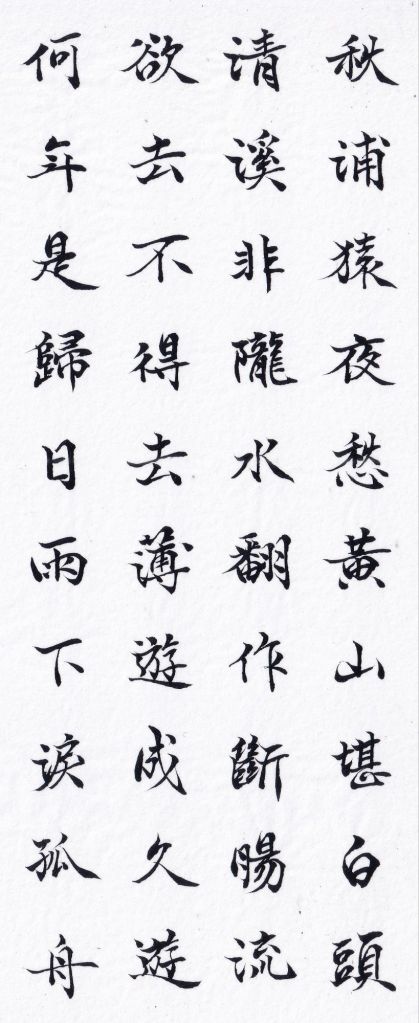 秋浦猿夜愁黃山堪白頭
清溪非隴水翻作斷腸流
欲去不得去薄遊成久遊
何年是歸日雨下淚孤舟